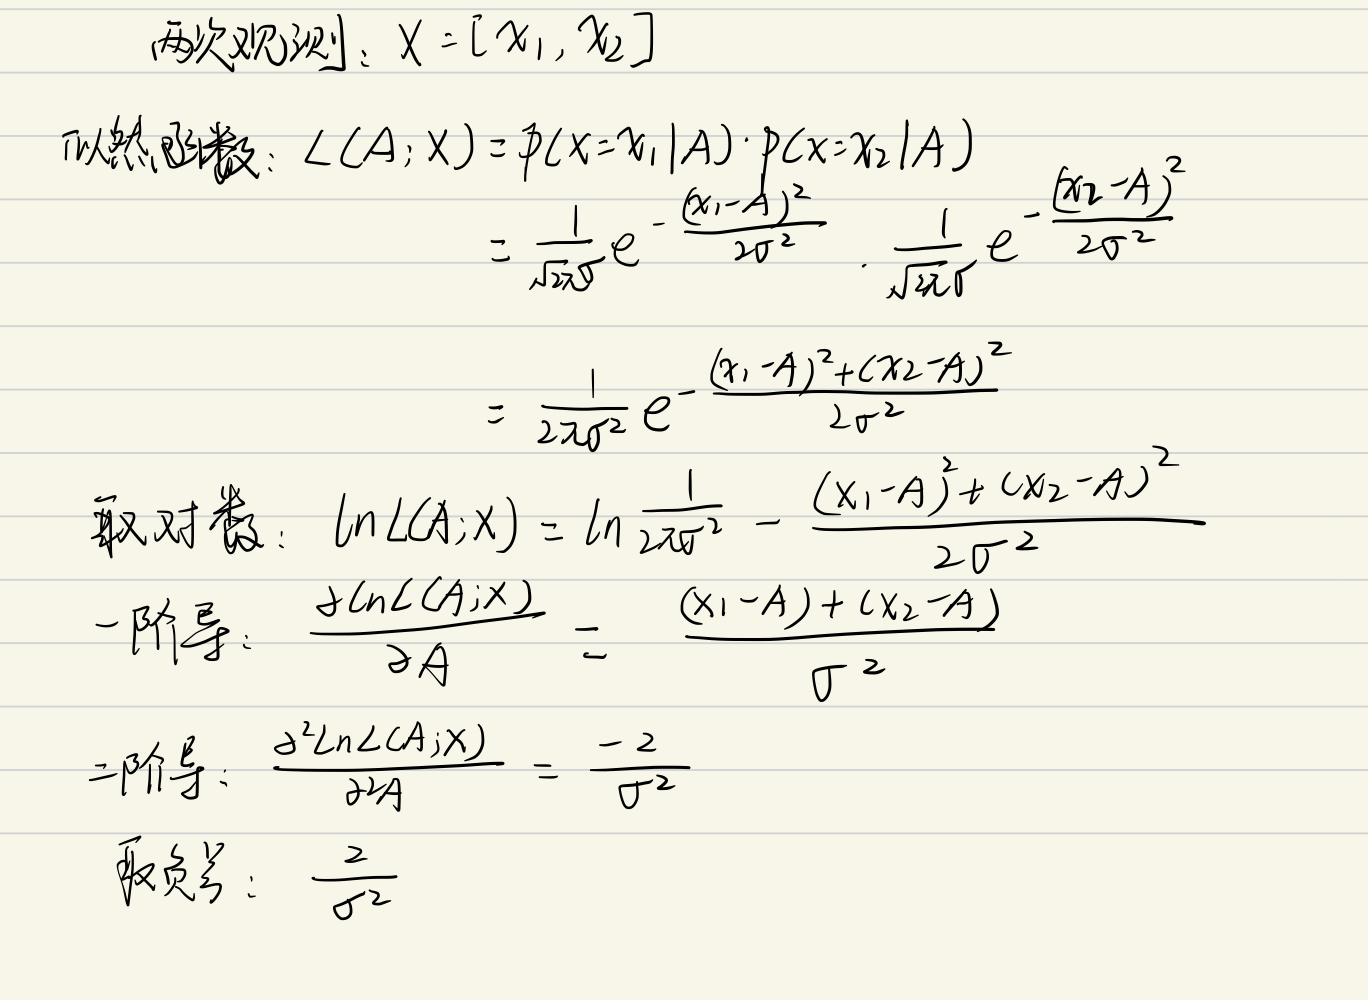 两次观测：X=[x₁, x₂]
似然函数：L(A; X) = p(x=x₁|A)·p(x=x₂|A)
= \frac{1}{\sqrt{2π}σ} e^{-\frac{(x₁-A)²}{2σ²}} · \frac{1}{\sqrt{2π}σ} e^{-\frac{(x₂-A)²}{2σ²}}
= \frac{1}{2πσ²} e^{-\frac{(x₁-A)²+(x₂-A)²}{2σ²}}
取对数：ln L(A; X) = ln \frac{1}{2πσ²} - \frac{(x₁-A)²+(x₂-A)²}{2σ²}
一阶导：\frac{∂lnL(A;X)}{∂A} = \frac{(x₁-A)+(x₂-A)}{σ²}
二阶导：\frac{∂²lnL(A;X)}{∂²A} = \frac{-2}{σ²}
取负号：\frac{2}{σ²}